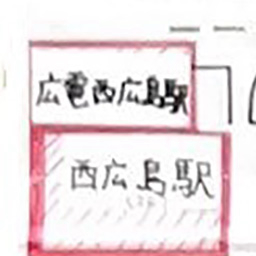 広電西広島駅
西広島駅